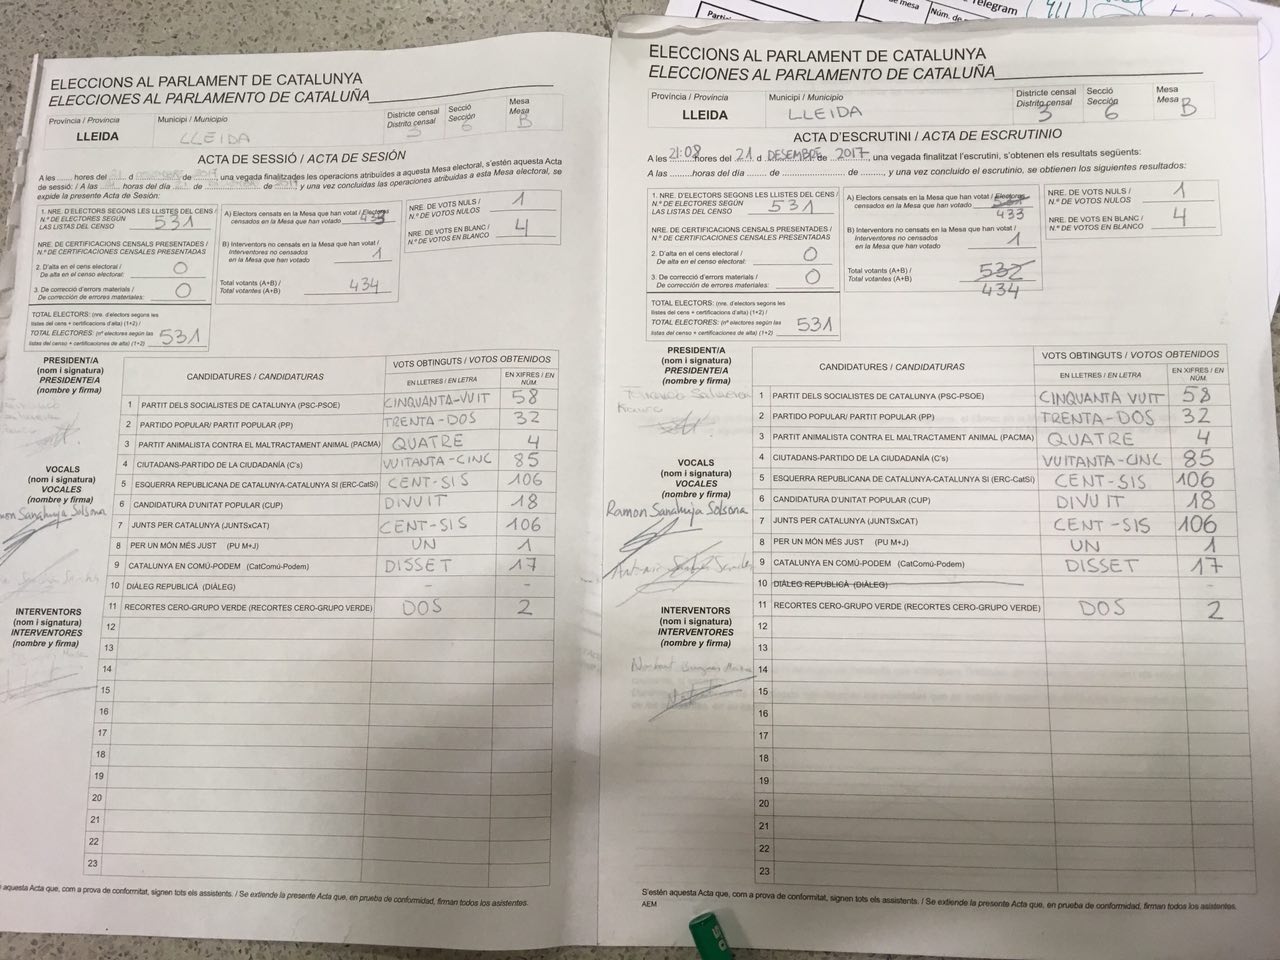 Telegram
de mesa
Núm. de
ELECCIONS AL PARLAMENT DE CATALUNYA
ELECCIONES AL PARLAMENTO DE CATALUÑA
Província / Provincia
LLEIDA
Municipi / Municipio
LLEIDA
Districte censal
Distrito censal
3
Secció
Sección
6
Mesa
Mesa
B
ACTA DE SESSIÓ / ACTA DE SESIÓN
A les ........ hores del 21 d de 2017, una vegada finalitzades les operacions atribuïdes a aquesta Mesa electoral, s'estén aquesta Acta
de sessió: / A las hores del día de de 2017 y una vez concluidas las operaciones atribuidas a esta Mesa electoral, se
expide la presente Acta de Sesión:
1. NRE. D'ELECTORS SEGONS LES LLISTES DEL CENS /
N.º DE ELECTORES SEGÚN
LAS LISTAS DEL CENSO 531
NRE. DE CERTIFICACIONS CENSALS PRESENTADES /
N.º DE CERTIFICACIONES CENSALES PRESENTADAS
2. D'alta en el cens electoral /
De alta en el censo electoral: 0
3. De correcció d'errors materials /
De corrección de errores materiales: 0
TOTAL ELECTORS: (nre. d'electors segons les
llistes del cens + certificacions d'alta) (1+2) /
TOTAL ELECTORES: (nº electores según las
listas del censo + certificaciones de alta) (1+2) 531
A) Electors censats en la Mesa que han votat / Electores
censados en la Mesa que han votado 433
B) Interventors no censats en la Mesa que han votat /
Interventores no censados
en la Mesa que han votado 1
Total votants (A+B) /
Total votantes (A+B) 434
NRE. DE VOTS NULS /
N.º DE VOTOS NULOS 1
NRE. DE VOTS EN BLANC /
N.º DE VOTOS EN BLANCO 4
PRESIDENT/A
(nom i signatura)
PRESIDENTE/A
(nombre y firma)
VOCALS
(nom i signatura)
VOCALES
(nombre y firma)
Ramon Sanahuja Solsona
INTERVENTORS
(nom i signatura)
INTERVENTORES
(nombre y firma)
CANDIDATURES / CANDIDATURAS
VOTS OBTINGUTS / VOTOS OBTENIDOS
EN LLETRES / EN LETRA
EN XIFRES / EN NÚM.
1 PARTIT DELS SOCIALISTES DE CATALUNYA (PSC-PSOE) CINQUANTA-VUIT 58
2 PARTIDO POPULAR/ PARTIT POPULAR (PP) TRENTA-DOS 32
3 PARTIT ANIMALISTA CONTRA EL MALTRACTAMENT ANIMAL (PACMA) QUATRE 4
4 CIUTADANS-PARTIDO DE LA CIUDADANÍA (C's) VUITANTA-CINC 85
5 ESQUERRA REPUBLICANA DE CATALUNYA-CATALUNYA SI (ERC-CatSí) CENT-SIS 106
6 CANDIDATURA D'UNITAT POPULAR (CUP) DIVUIT 18
7 JUNTS PER CATALUNYA (JUNTSxCAT) CENT-SIS 106
8 PER UN MÓN MÉS JUST (PU M+J) UN 1
9 CATALUNYA EN COMÚ-PODEM (CatComú-Podem) DISSET 17
10 DIÀLEG REPUBLICÀ (DIÀLEG) - -
11 RECORTES CERO-GRUPO VERDE (RECORTES CERO-GRUPO VERDE) DOS 2
12
13
14
15
16
17
18
19
20
21
22
23
aquesta Acta que, com a prova de conformitat, signen tots els assistents. / Se extiende la presente Acta que, en prueba de conformidad, firman todos los asistentes.
ELECCIONS AL PARLAMENT DE CATALUNYA
ELECCIONES AL PARLAMENTO DE CATALUÑA
Província / Provincia
LLEIDA
Municipi / Municipio
LLEIDA
Districte censal
Distrito censal
3
Secció
Sección
6
Mesa
Mesa
B
ACTA D'ESCRUTINI / ACTA DE ESCRUTINIO
A les 21:08 hores del 21 d DESEMBRE de 2017, una vegada finalitzat l'escrutini, s'obtenen els resultats següents:
A las .........horas del día ....... de ................ de ........, y una vez concluido el escrutinio, se obtienen los siguientes resultados:
1. NRE. D'ELECTORS SEGONS LES LLISTES DEL CENS /
N.º DE ELECTORES SEGÚN
LAS LISTAS DEL CENSO 531
NRE. DE CERTIFICACIONS CENSALS PRESENTADES /
N.º DE CERTIFICACIONES CENSALES PRESENTADAS
2. D'alta en el cens electoral /
De alta en el censo electoral: 0
3. De correcció d'errors materials /
De corrección de errores materiales: 0
TOTAL ELECTORS: (nre. d'electors segons les
llistes del cens + certificacions d'alta) (1+2) /
TOTAL ELECTORES: (nº electores según las
listas del censo + certificaciones de alta) (1+2) 531
A) Electors censats en la Mesa que han votat / Electores
censados en la Mesa que han votado 531
433
B) Interventors no censats en la Mesa que han votat /
Interventores no censados
en la Mesa que han votado 1
Total votants (A+B) /
Total votantes (A+B) 532
434
NRE. DE VOTS NULS /
N.º DE VOTOS NULOS 1
NRE. DE VOTS EN BLANC /
N.º DE VOTOS EN BLANCO 4
PRESIDENT/A
(nom i signatura)
PRESIDENTE/A
(nombre y firma)
VOCALS
(nom i signatura)
VOCALES
(nombre y firma)
Ramon Sanahuja Solsona
INTERVENTORS
(nom i signatura)
INTERVENTORES
(nombre y firma)
CANDIDATURES / CANDIDATURAS
VOTS OBTINGUTS / VOTOS OBTENIDOS
EN LLETRES / EN LETRA
EN XIFRES / EN NÚM.
1 PARTIT DELS SOCIALISTES DE CATALUNYA (PSC-PSOE) CINQUANTA VUIT 58
2 PARTIDO POPULAR/ PARTIT POPULAR (PP) TRENTA-DOS 32
3 PARTIT ANIMALISTA CONTRA EL MALTRACTAMENT ANIMAL (PACMA) QUATRE 4
4 CIUTADANS-PARTIDO DE LA CIUDADANÍA (C's) VUITANTA-CINC 85
5 ESQUERRA REPUBLICANA DE CATALUNYA-CATALUNYA SI (ERC-CatSí) CENT-SIS 106
6 CANDIDATURA D'UNITAT POPULAR (CUP) DIVUIT 18
7 JUNTS PER CATALUNYA (JUNTSxCAT) CENT-SIS 106
8 PER UN MÓN MÉS JUST (PU M+J) UN 1
9 CATALUNYA EN COMÚ-PODEM (CatComú-Podem) DISSET 17
10 DIÀLEG REPUBLICÀ (DIÀLEG) -
11 RECORTES CERO-GRUPO VERDE (RECORTES CERO-GRUPO VERDE) DOS 2
12
13
14
15
16
17
18
19
20
21
22
23
S'estén aquesta Acta que, com a prova de conformitat, signen tots els assistents. / Se extiende la presente Acta que, en prueba de conformidad, firman todos los asistentes.
AEM